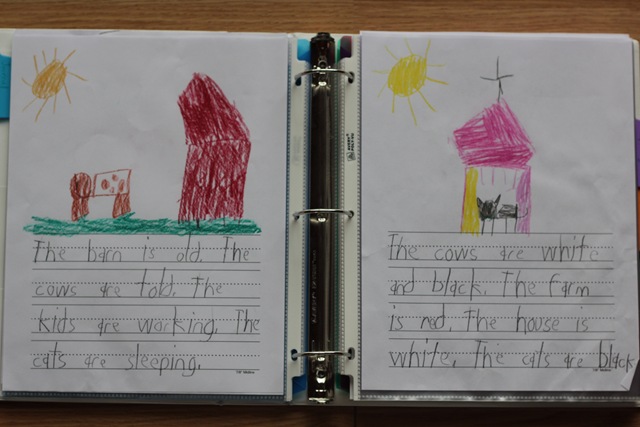 The barn is old. The
cows are told. The
kids are working. The
cats are sleeping.
The cows are white
and black. The farm
is red. The house is
white. The cats are black